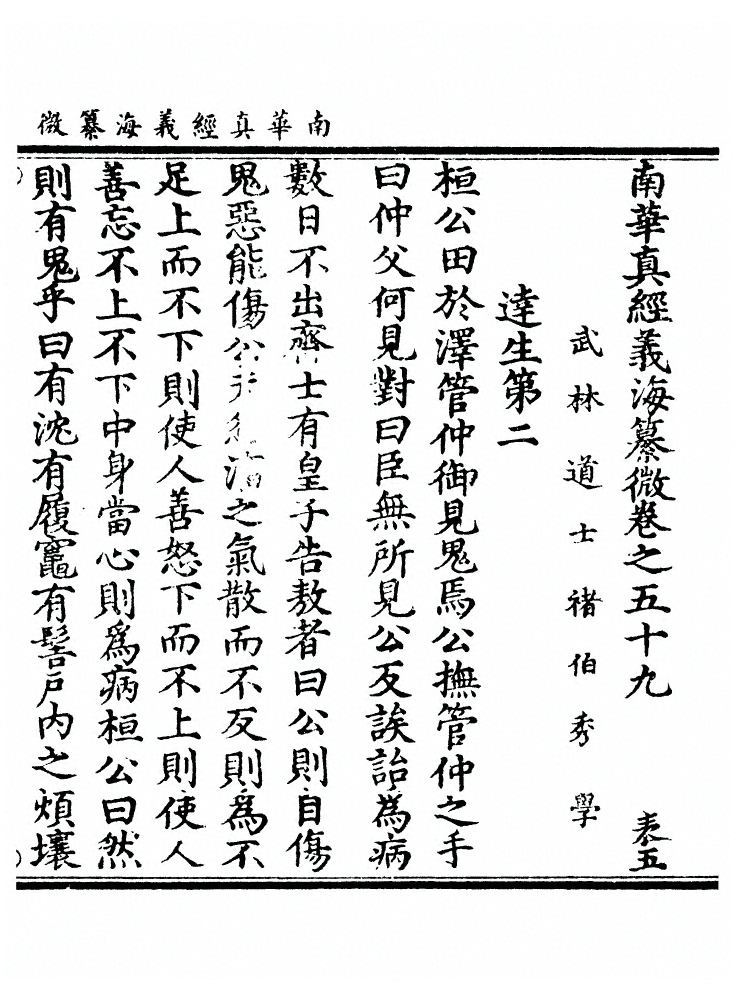 南華真經義海纂微
南華真經義海纂微卷之五十九 表五
武林道士褚伯秀學
達生第二
桓公田於澤管仲御見鬼焉公撫管仲之手
曰仲父何見對曰臣無所見公反誒詒為病
數日不出齊士有皇子告敖者曰公則自傷
鬼惡能傷公夫忿滀之氣散而不反則爲不
足上而不下則使人善怒下而不上則使人
善忘不上不下中身當心則爲病桓公曰然
則有鬼乎曰有沈有履竈有髻戶內之煩壤